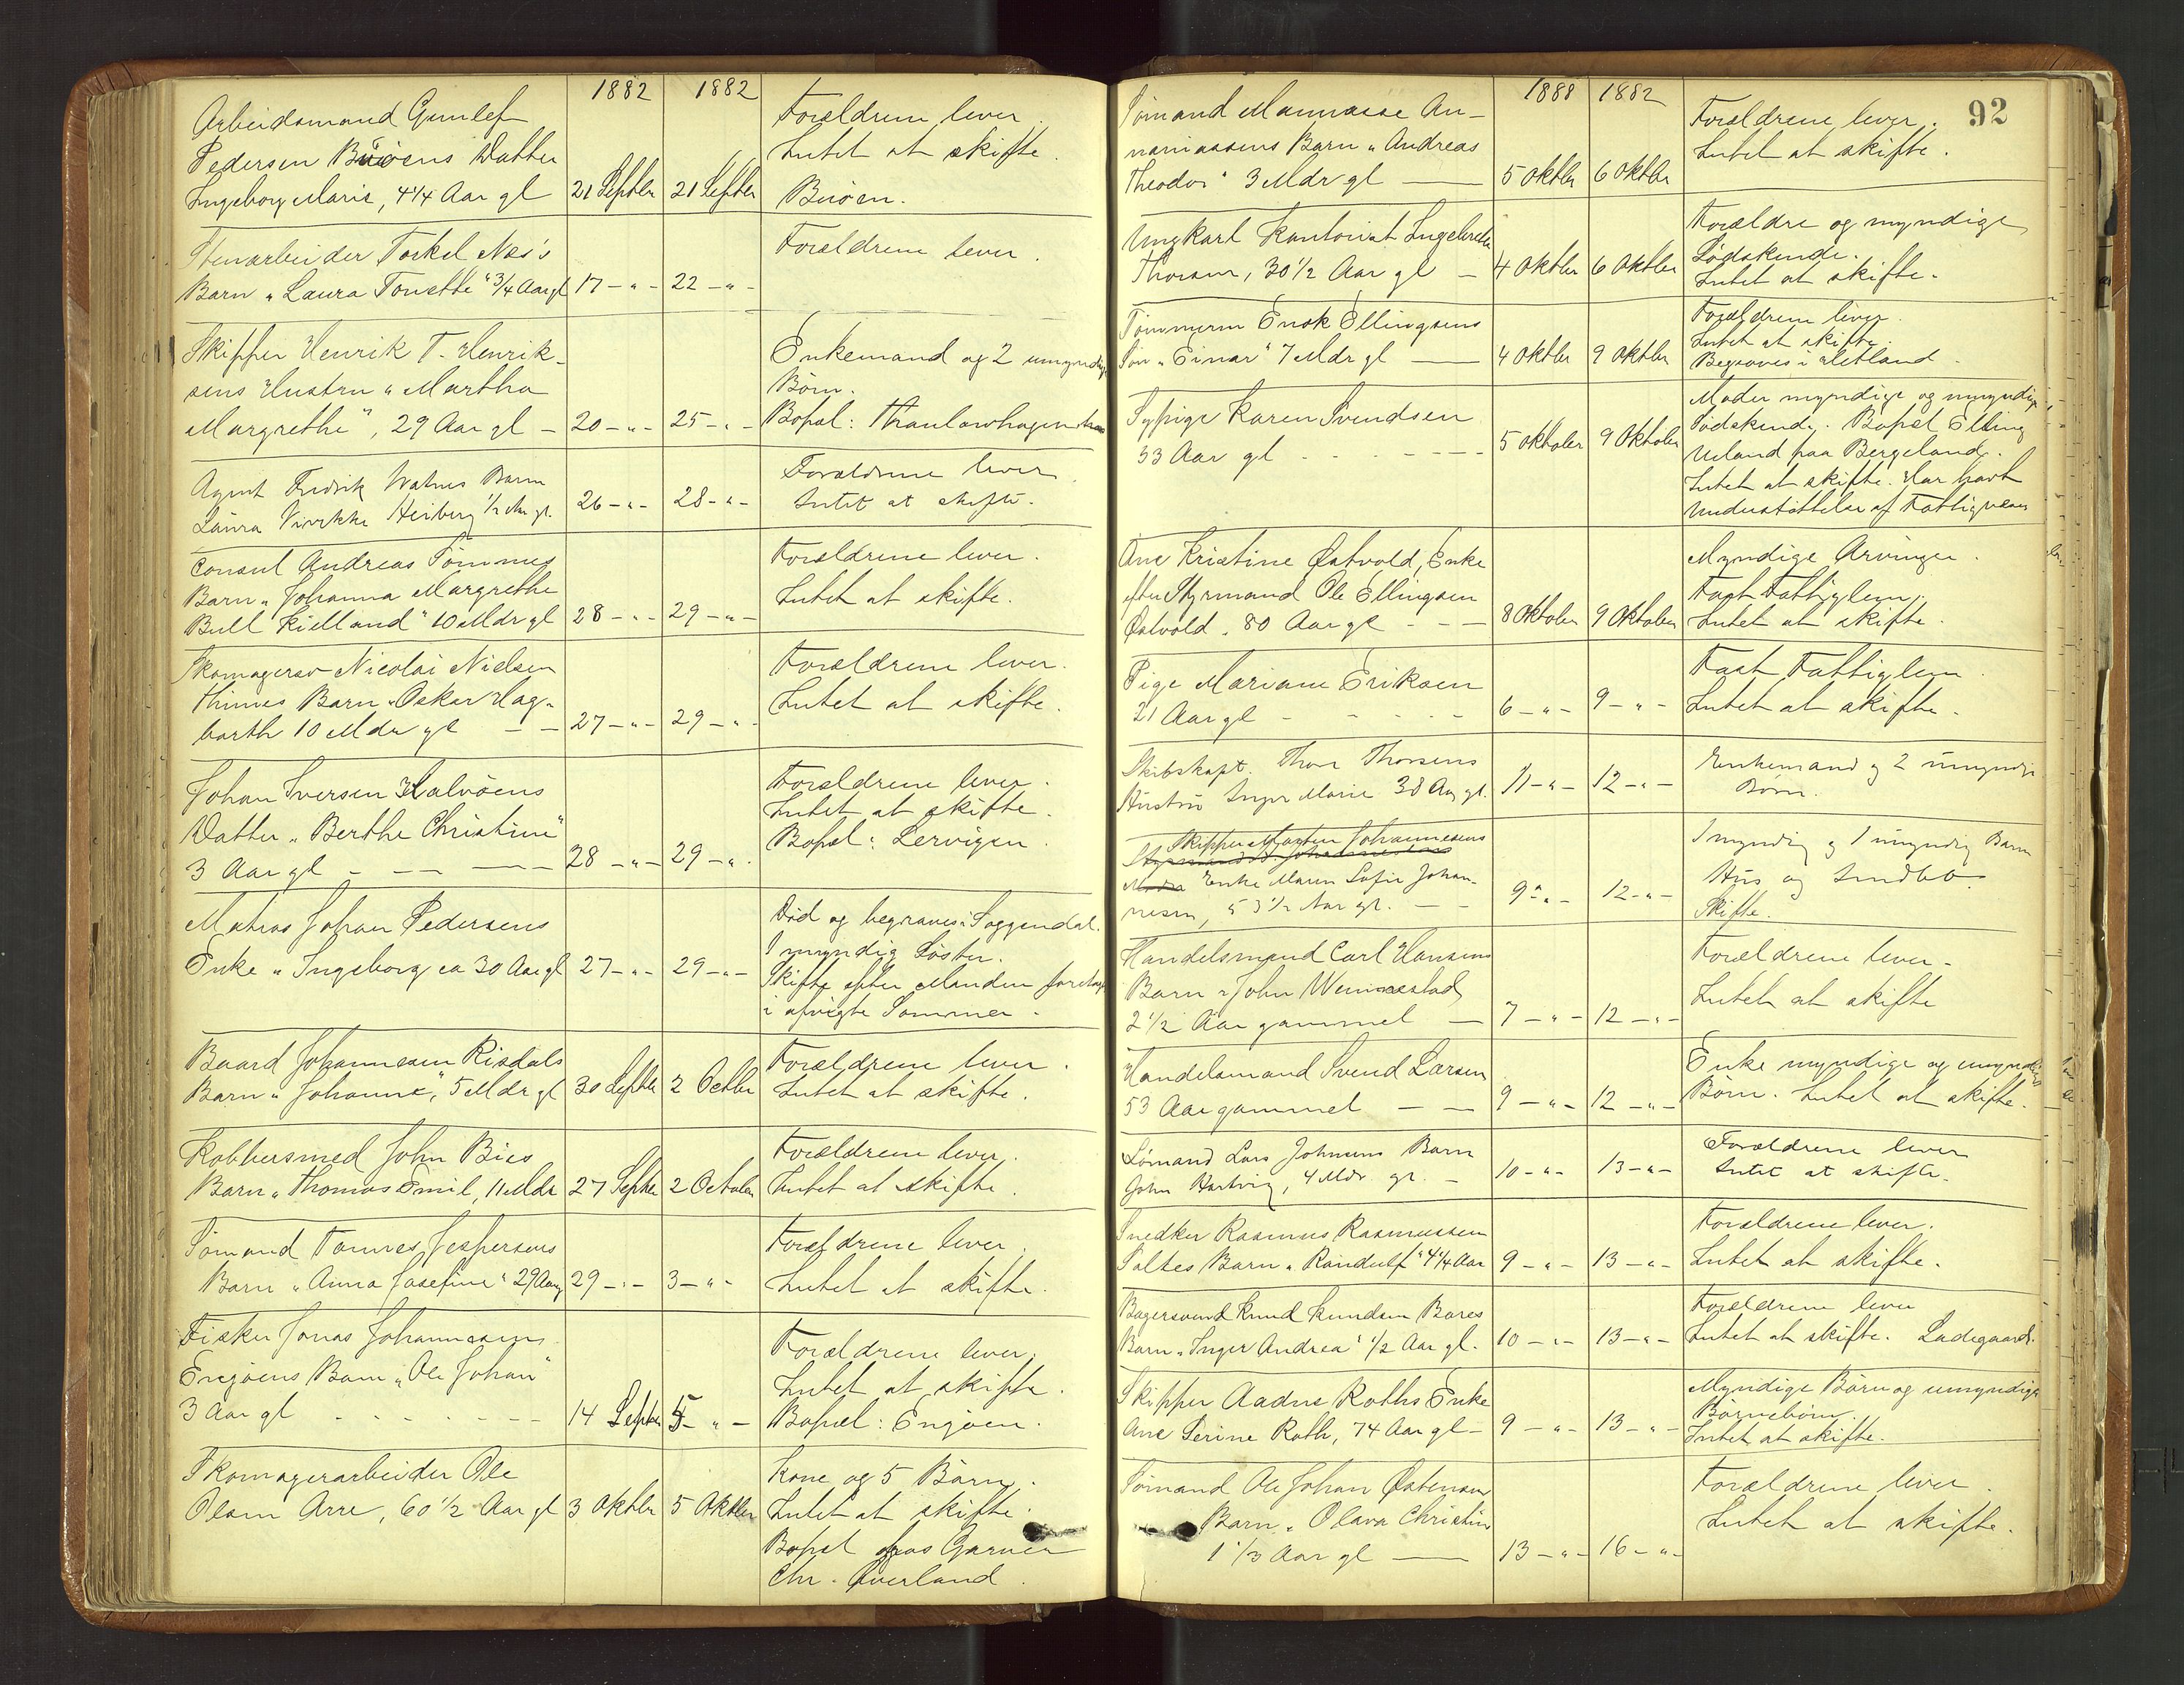 1882 1882
Arbeidsmand Gunlef
Pedersen Buøens Datter
Ingeborg Marie, 4 1/4 Aar gl 21 Septbr 21 Septbr
Forældrene lever.
Intet at skifte.
Buøen.
Stenarbeider Torkel Næs's
Barn "Laura Tonette" 3/4 Aar gl 17 - " - 22 - " -
Forældrene lever.
Skipper Henrik T. Henrik-
sens Hustru "Martha
Margrethe", 29 Aar gl - 20 - " - 25 - " -
Enkemand og 2 umyndige
Børn.
Bopæl:
Agent Fredrik Watnes Barn
Laura Vivikke Heiberg 1/2 Aar gl. 26 - " - 28 - " -
Forældrene lever
Intet at skifte.
Consul Andreas Sømmes
Barn "Johanna Margrethe
Bull Kielland" 10 Mdr gl 28 - " - 29 - " -
Forældrene lever.
Intet at skifte.
Skomagersv Nicolai Nielsen
Thimes Barn "Oskar Hag-
barth 10 Mdr gl - - 27 - " - 29 - " -
Forældrene lever.
Intet at skifte.
Johan Iversen Kalvøens
Datter "Berthe Christine"
3 Aar gl - - - 28 - " - 29 - " -
Forældrene lever.
Intet at skifte.
Bopæl: Lervigen.
Matros Johan Pedersens
Enke "Ingeborg ca 30 Aar gl 27 - " - 29 - " -
Død og begraves i Soggendal.
1 myndig Søster.
Skifte efter Manden foretaget
i afvigte Sommer.
Baard Johannesen Risdals
Barn "Johanne", 5 Mdr gl 30 Septbr 2 Octbr
Forældrene lever.
Intet at skifte.
Kobbersmed John Bies
Barn "Thomas Emil, 11 Mdr 27 Septbr 2 October
Forældrene lever.
Intet at skifte.
Sømand Tønnes Jespersens
Barn "Anna Josefine" 29 - " - 3 - " -
Forældrene lever.
Intet at skifte.
Fisker Jonas Johannesens
Engøens Barn "Ole Johan"
3 Aar gl - - - - - - 14 Septbr 5 - " -
Forældrene lever.
Intet at skifte.
Bopæl: Engøen.
Skomagerarbeider Ole
Olsen Arre, 60 1/2 Aar gl 3 Oktbr 5 Oktbr
Kone og 5 Børn.
Intet at skifte.
Bopæl hos Garver
Chr. Øverland.
92
1888 1882
Sømand Mannasse An-
naniassens Barn "Andreas
Theodor" 3 Mdr gl - 5 Oktbr 6 Oktbr
Forældrene lever.
Intet at skifte.
Ungkarl Kontorist Ingebreth
Thorsen, 30 1/2 Aar gl - 4 Oktbr 6 Oktbr
Forældre og myndige
Sødskende.
Intet at skifte.
Tømmerm Enok Ellingsens
Søn "Einar" 7 Mdr gl - 4 Oktbr 9 Oktbr
Forældrene lever.
Intet at skifte.
Begraves i Hetland.
Sypige Karen Svendsen
33 Aar gl - - - - - 5 Oktober 9 Oktober
Moder myndige og umyndige
Sødskende. Bopæl Elling
Ueland paa Bergeland.
Intet at skifte. Har havt
Understøttelse af Fattigvæsn
Ane Kristine Østvold, Enke
efter Styrmand Ole Ellingsen
Østvold. 80 Aar gl - - - 8 Oktober 9 Oktober
Myndige Arvinger.
Fast Fattiglem.
Intet at skifte.
Pige Mariane Eriksen
21 Aar gl - - - - - 6 - " - 9 - " -
Fast Fattiglem.
Intet at skifte.
Skibskapt. Thore Thorsens
Hustru Inger Marie 38 Aar gl. 11 - " - 12 - " -
Enkemand og 2 umyndige
Børn.
Skipper Morten Johannesens
Enke Maren Sofie Johan-
nesen, 53 1/2 Aar gl. - - 9 - " - 12 - " -
1 myndig og 1 umyndig Barn
Hus og Indbo.
Skifte.
Handelsmand Carl Hansens
Barn "John Wennestad
2 1/2 Aar gammel - 7 - " - 12 - " -
Forældrene lever.
Intet at skifte
Handelsmand Svend Larsen
53 Aar gammel - - 9 - " - 12 - " -
Enke myndige og umyndige
Børn. Intet at skifte.
Sømand Lars Johnsens Barn
John Hartvig, 4 Mdr. gl. - 10 - " - 13 - " -
Forældrene lever
Intet at skifte.
Snedker Rasmus Rasmussen
Saltes Barn "Randulf" 4 1/4 Aar 9 - " - 13 - " -
Forældrene lever.
Intet at skifte.
Bagersvend Knud Knudsen Bores
Barn "Inger Andrea" 1/2 Aar gl. 10 - " - 13 - " -
Forældrene lever
Intet at skifte. Ladegaard.
Skipper Aadne Roths Enke
Ane Serine Roth, 74 Aar gl - 9 - " - 13 - " -
Myndige Børn og umyndige
Børnebørn.
Intet at skifte.
Sømand Ole Johan Østensens
Barn "Olava Christine
1 1/3 Aar gl - 13 - " - 16 - " -
Forældrene lever.
Intet at skifte.